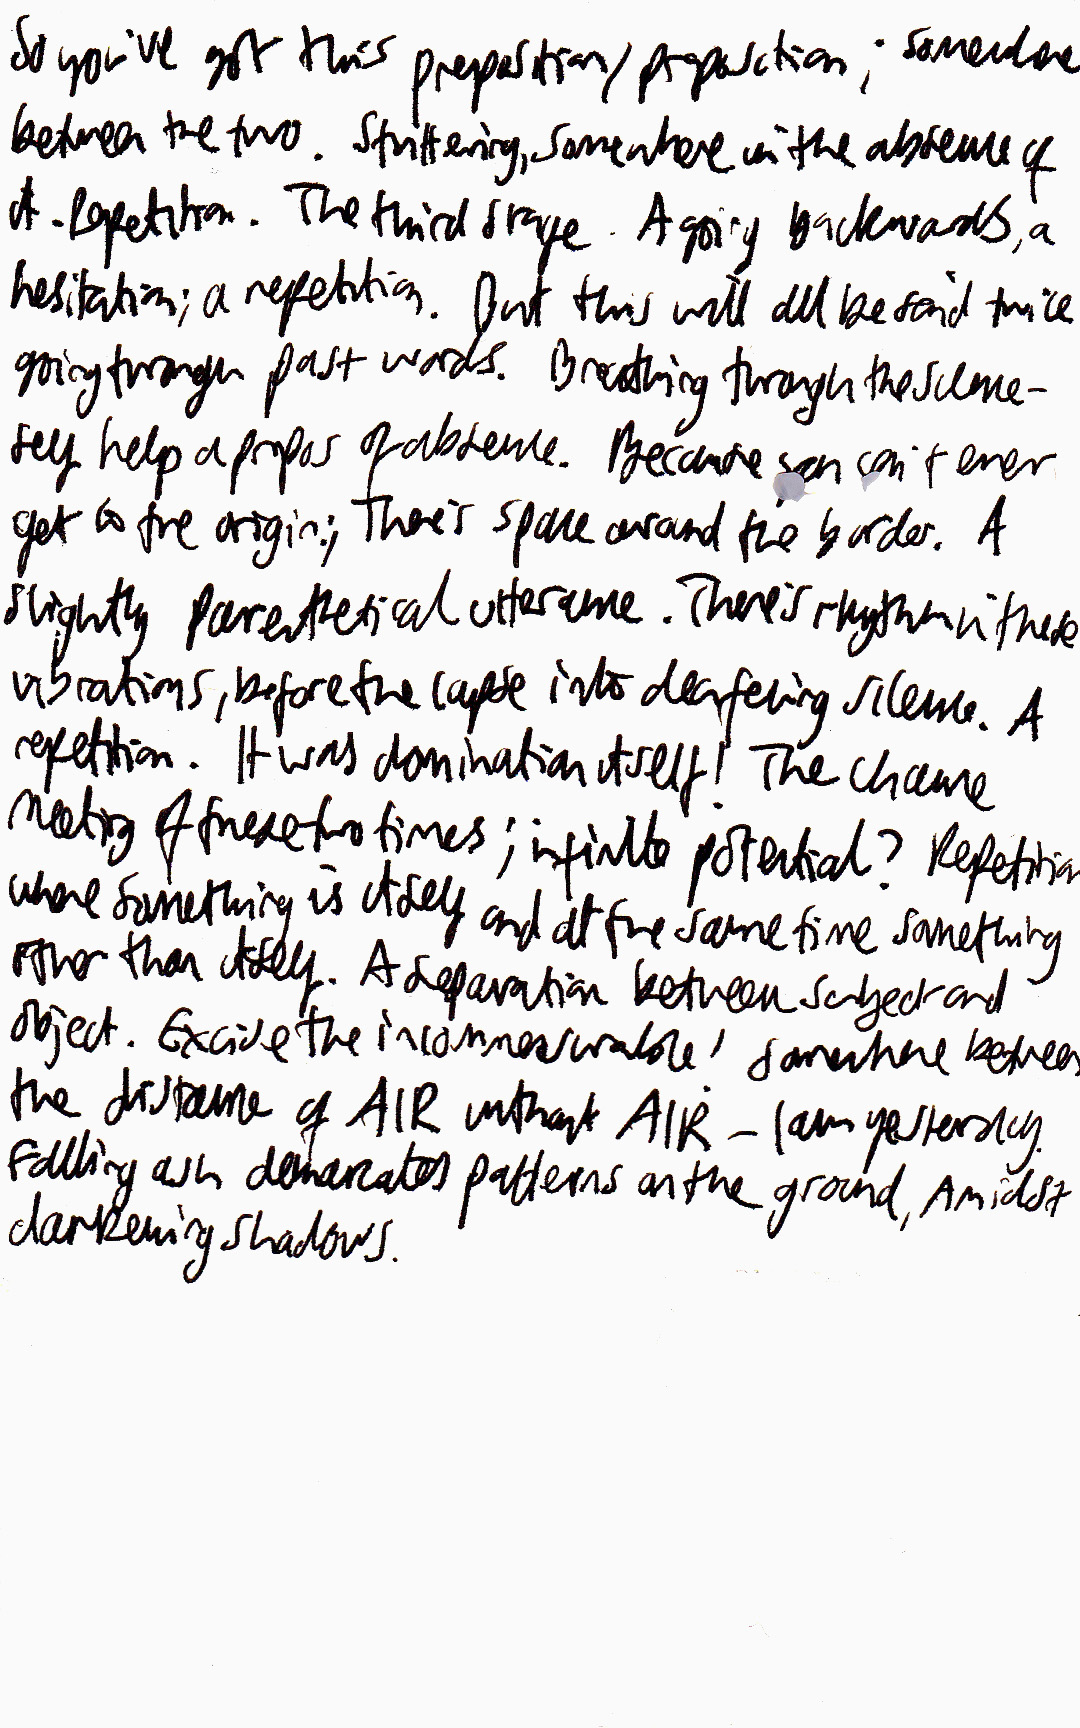 So you've got this preposition/proposition; somewhere
between the two. Stuttering, somewhere in the absence of
it. Repetition. The third stage. A going backwards, a
hesitation; a repetition. But this will all be said twice
going through past words. Breathing through the silence -
self help apropos of absence. Because you can't ever
get to the origin; There's space around the border. A
slightly parenthetical utterance. There's rhythm in these
vibrations, before the lapse into deafening silence. A
repetition. It was domination itself! The chance
Meeting of these two times; infinite potential? Repetition
where something is itself and at the same time something
other than itself. A separation between subject and
object. Excise the incommensurable! Somewhere between
the distance of AIR without AIR - I am yesterday.
Falling ash demarcates patterns on the ground, Amidst
darkening shadows.